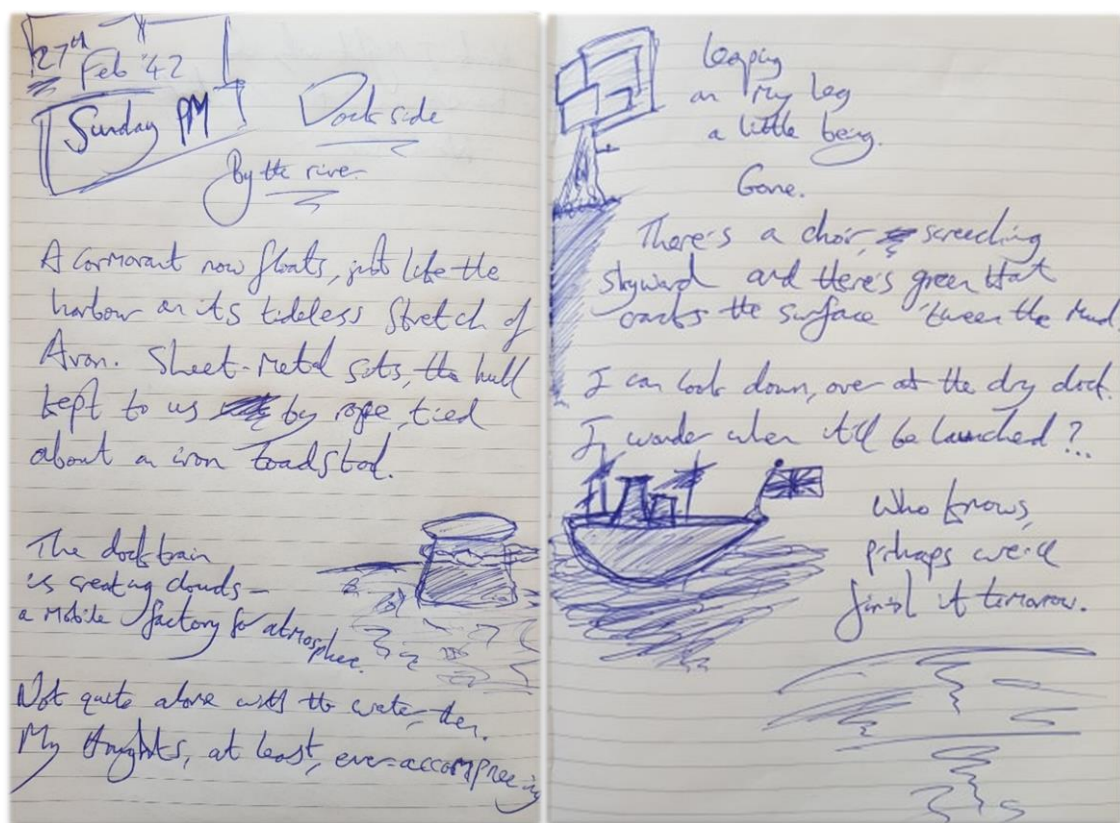 27th
Feb '42
Sunday PM
Dockside
By the river
A cormorant now floats, just like the
harbour on its tideless stretch of
Avon. Sheet-metal sits, the hull
kept to us by rope, tied
about an iron toadstool.
The dock train
is creating clouds –
a mobile factory for atmosphere.
Not quite alone with the water, then.
My thoughts, at least, ever-accompanying
leaping
on my leg
a little being.
Gone.
There's a choir, screeching
skyward and there's green that
cracks the surface 'tween the mud
I can look down, over at the dry dock.
I wonder when it'll be launched?...
Who knows,
perhaps we'll
finish it tomorrow.